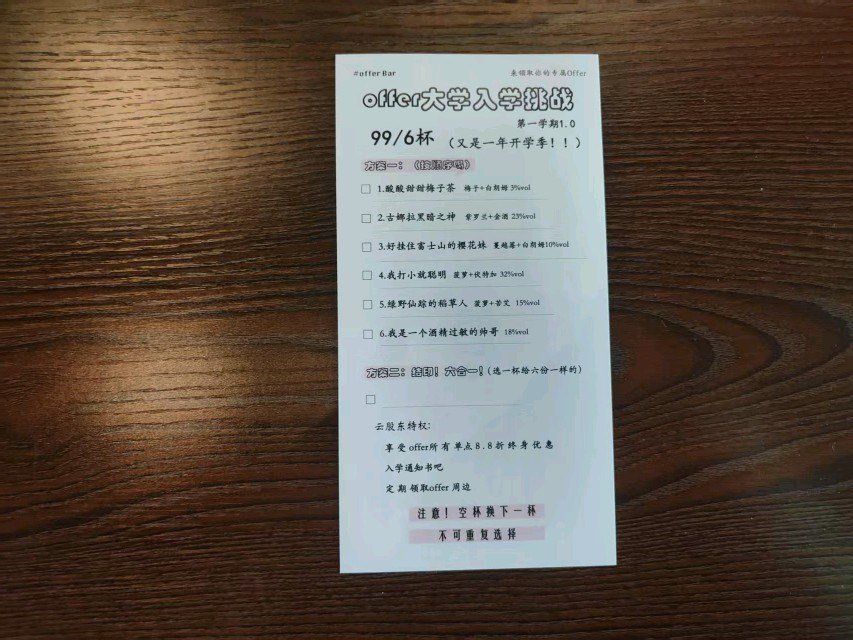 #offer Bar
来领取你的专属Offer
offer大学入学挑战
第一学期1.0
99/6杯 (又是一年开学季!!)
方案一: (按顺序喝)
1.酸酸甜甜梅子茶 梅子+白朗姆 3%vol
2.古娜拉黑暗之神 紫罗兰+金酒 23%vol
3.好挂住富士山的樱花妹 蔓越莓+白朗姆10%vol
4.我打小就聪明 菠萝+伏特加 32%vol
5.绿野仙踪的稻草人 菠萝+苦艾 15%vol
6.我是一个酒精过敏的帅哥 18%vol
方案二: 结印! 六合一!(选一杯给六份一样的)
云股东特权:
享受 offer所有单点8.8折终身优惠
入学通知书吧
定期领取offer 周边
注意! 空杯换下一杯
不可重复选择